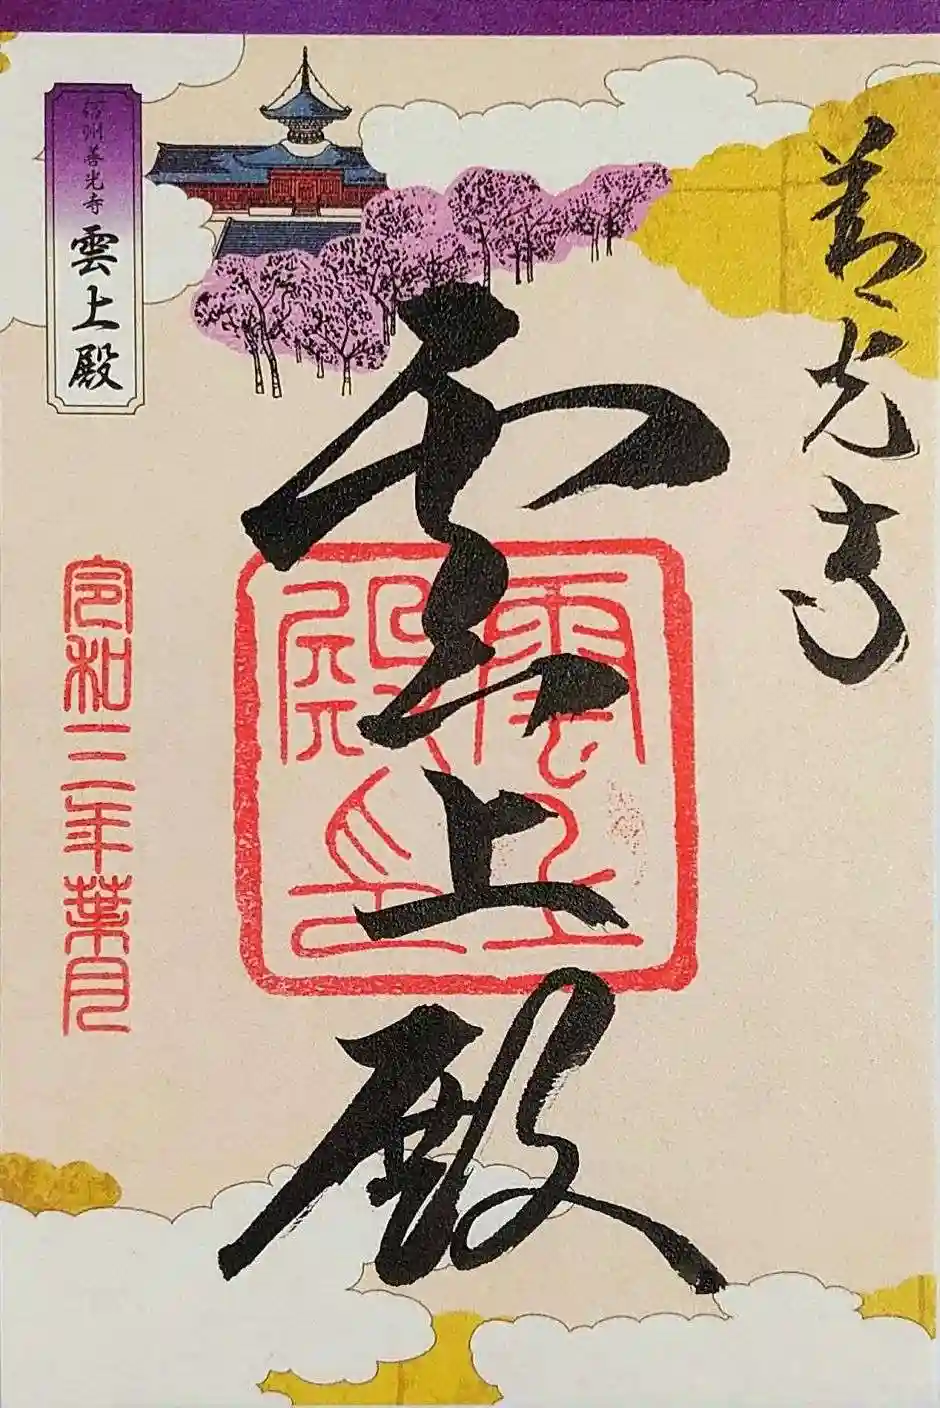 善光寺
雲上殿
雲上殿印
信州善光寺
雲上殿
令和三年葉月